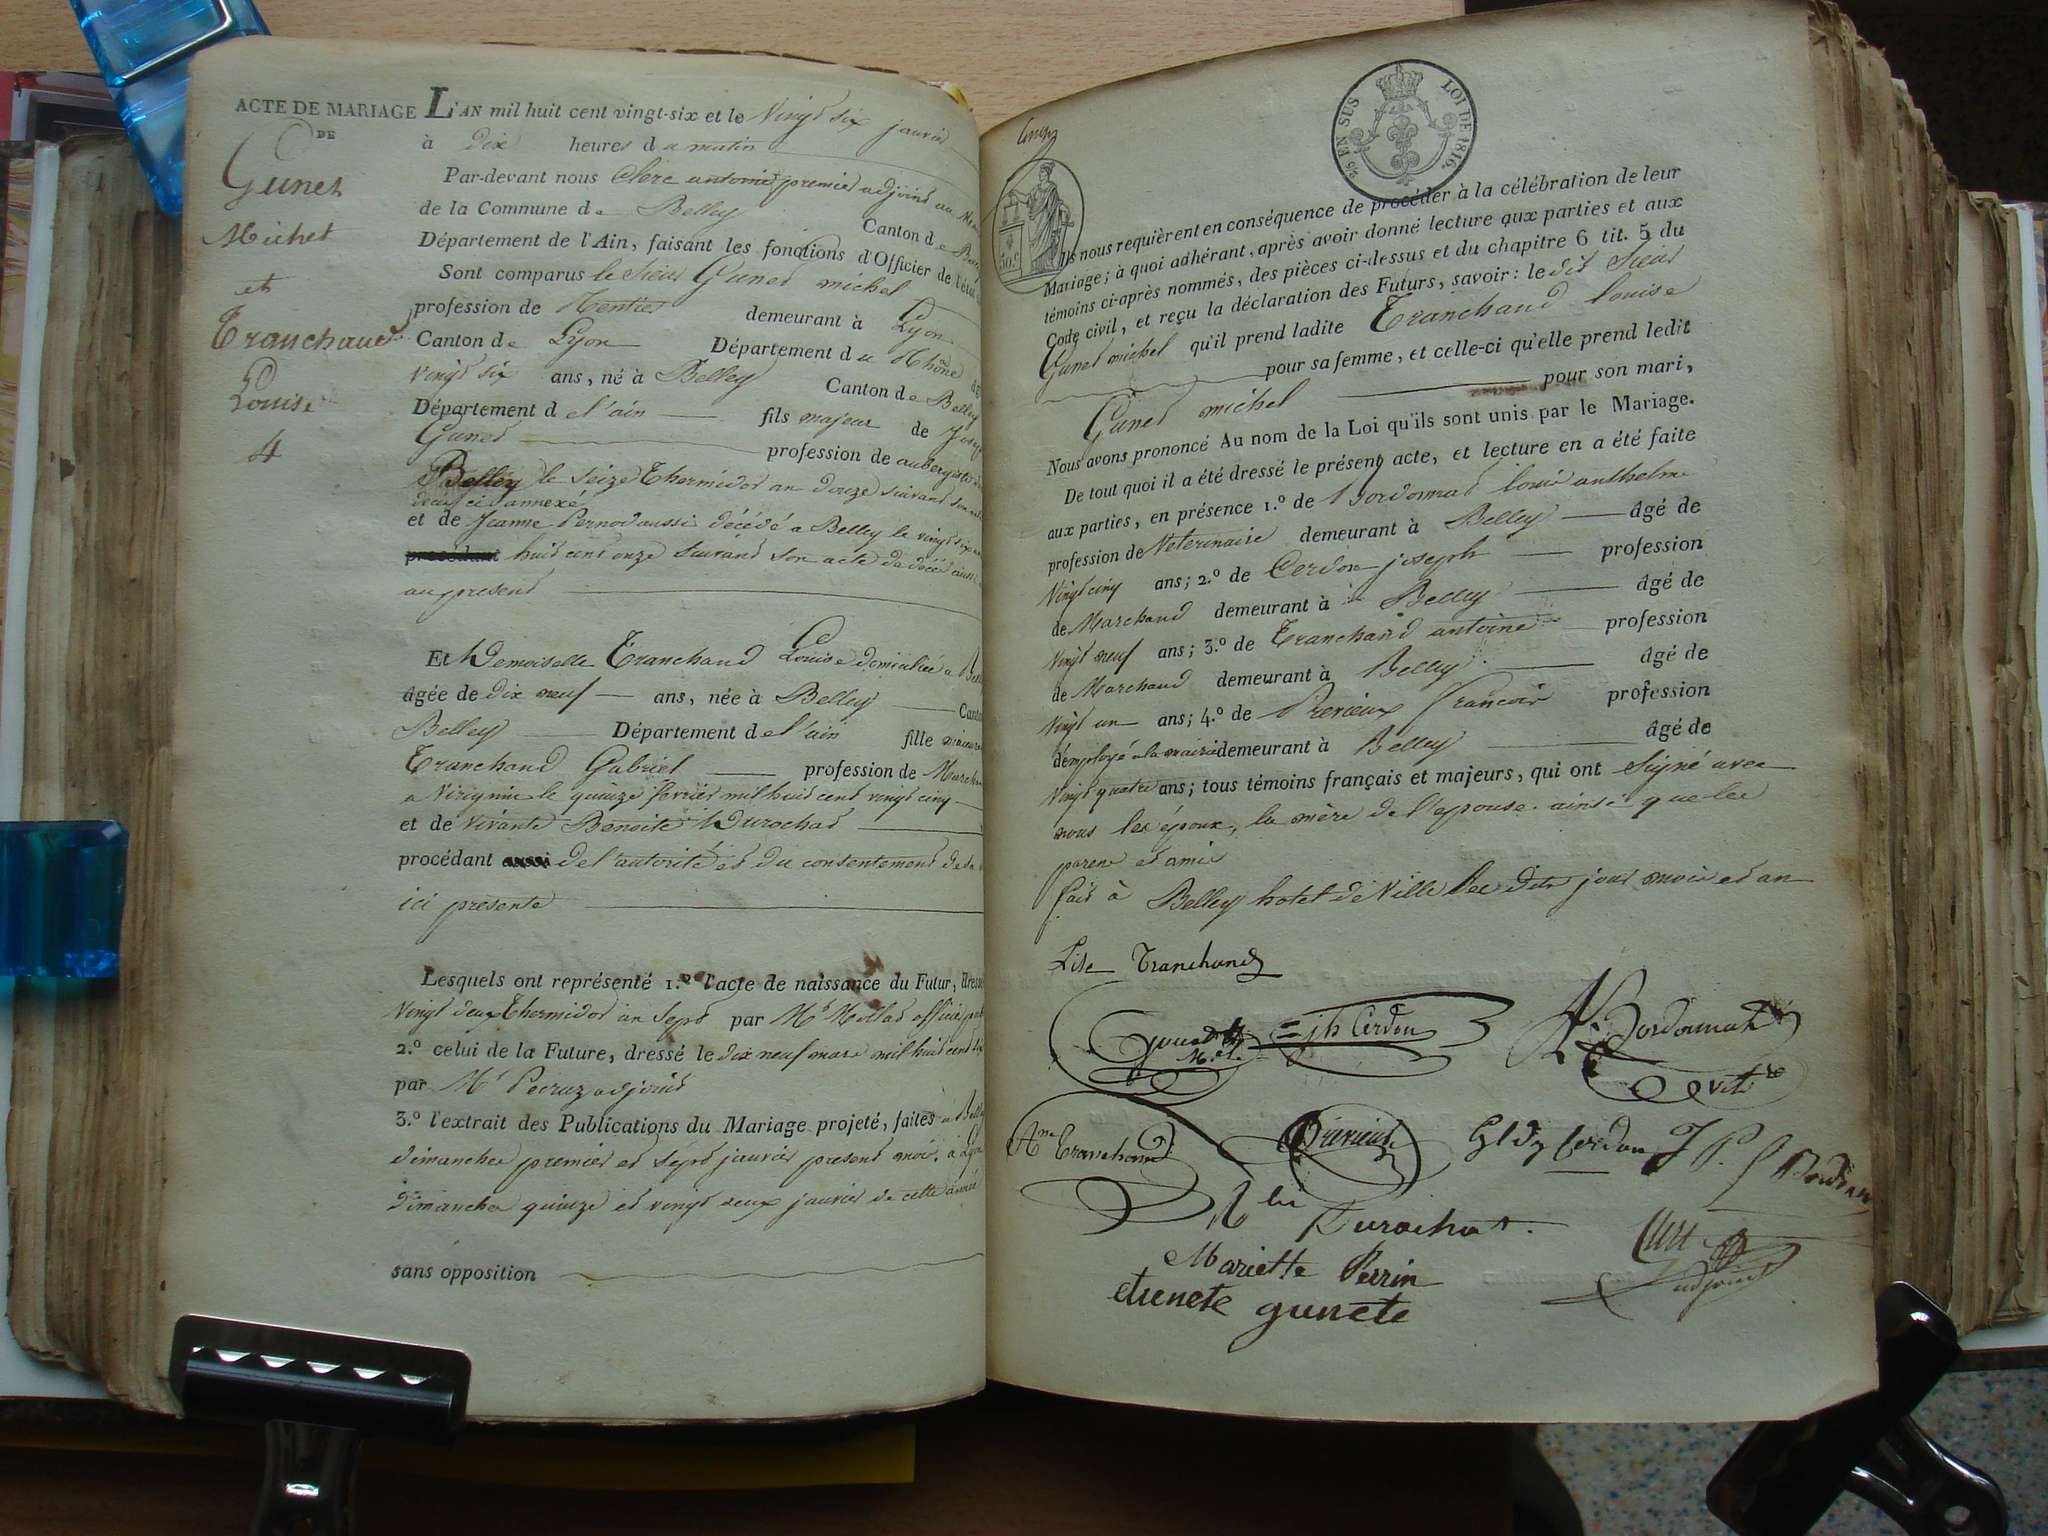 ACTE DE MARIAGE
DE
Gunet
Michel
et
Tranchand
Louise
4
L'AN mil huit cent vingt-six et le Vingt six janvier
à Dix heures du matin
Par-devant nous Clerc antoine premier adjoint au
de la Commune de Belley Canton de
Département de l'Ain, faisant les fonctions d'Officier de l'état
Sont comparus le Sieur Gunet michel
profession de Rentier demeurant à Lyon
Canton de Lyon Département du Rhône
Vingt six ans, né à Belley Canton de Belley
Département de l'ain fils majeur de
Gunet profession de aubergiste
Belley le seize Thermidor an douze suivant son
décès ci annexé
et de Jeanne Pernod aussi décédé a Belley le vingt
procédant huit cent onze suivant son acte de décès aussi
au present
Et Demoiselle Tranchand Louise domiciliée a
âgée de dix neuf ans, née à Belley
Belley Département de l'ain fille mineure
Tranchand Gabriel profession de
a Virignin le quinze fevrier mil huit cent vingt cinq
et de vivante Benoite Durochat
procédant aussi de l'autorité et du consentement de sa
ici presente
Lesquels ont représenté 1.º l'acte de naissance du Futur, dressé
Vingt deux Thermidor an Sept par Mr Mollard officier
2.º celui de la Future, dressé le dix neuf mars mil huit cent
par Mr Pecruz adjoint
3.º l'extrait des Publications du Mariage projeté, faites
dimanches premier et sept janvier present mois. à
Dimanches quinze et vingt deux janvier de cette année
sans opposition
25 EN SUS
LOI DE 1816.
50.c
Ils nous requièrent en conséquence de procéder à la célébration de leur
Mariage; à quoi adhérant, après avoir donné lecture aux parties et aux
témoins ci-après nommés, des pièces ci-dessus et du chapitre 6 tit. 5 du
Code civil, et reçu la déclaration des Futurs, savoir: le dit Sieur
Gunet michel qu'il prend ladite Tranchand louise
pour sa femme, et celle-ci qu'elle prend ledit
Gunet michel pour son mari,
Nous avons prononcé Au nom de la Loi qu'ils sont unis par le Mariage.
De tout quoi il a été dressé le présent acte, et lecture en a été faite
aux parties, en présence 1.º de Bordonnat louis anthelme
profession de Veterinaire demeurant à Belley âgé de
Vingt cinq ans; 2.º de Cerdon joseph profession
de Marchand demeurant à Belley âgé de
Vingt neuf ans; 3.º de Tranchand antoine profession
de Marchand demeurant à Belley âgé de
Vingt un ans; 4.º de Prévieux francois profession
d'employé a la mairie demeurant à Belley âgé de
Vingt quatre ans; tous témoins français et majeurs, qui ont Signé avec
nous les époux, la mère de l'epouse. ainsi que les
parens et amis
fait à Belley hotel de Ville les dits jour mois et an
Lise Tranchand
Gunet
jh Cerdon
Bordonnat
vetre
Ane Tranchand
Prévieux
Cerdon
Durochat.
Clerc
adjoint
Mariette Perrin
etienete gunete